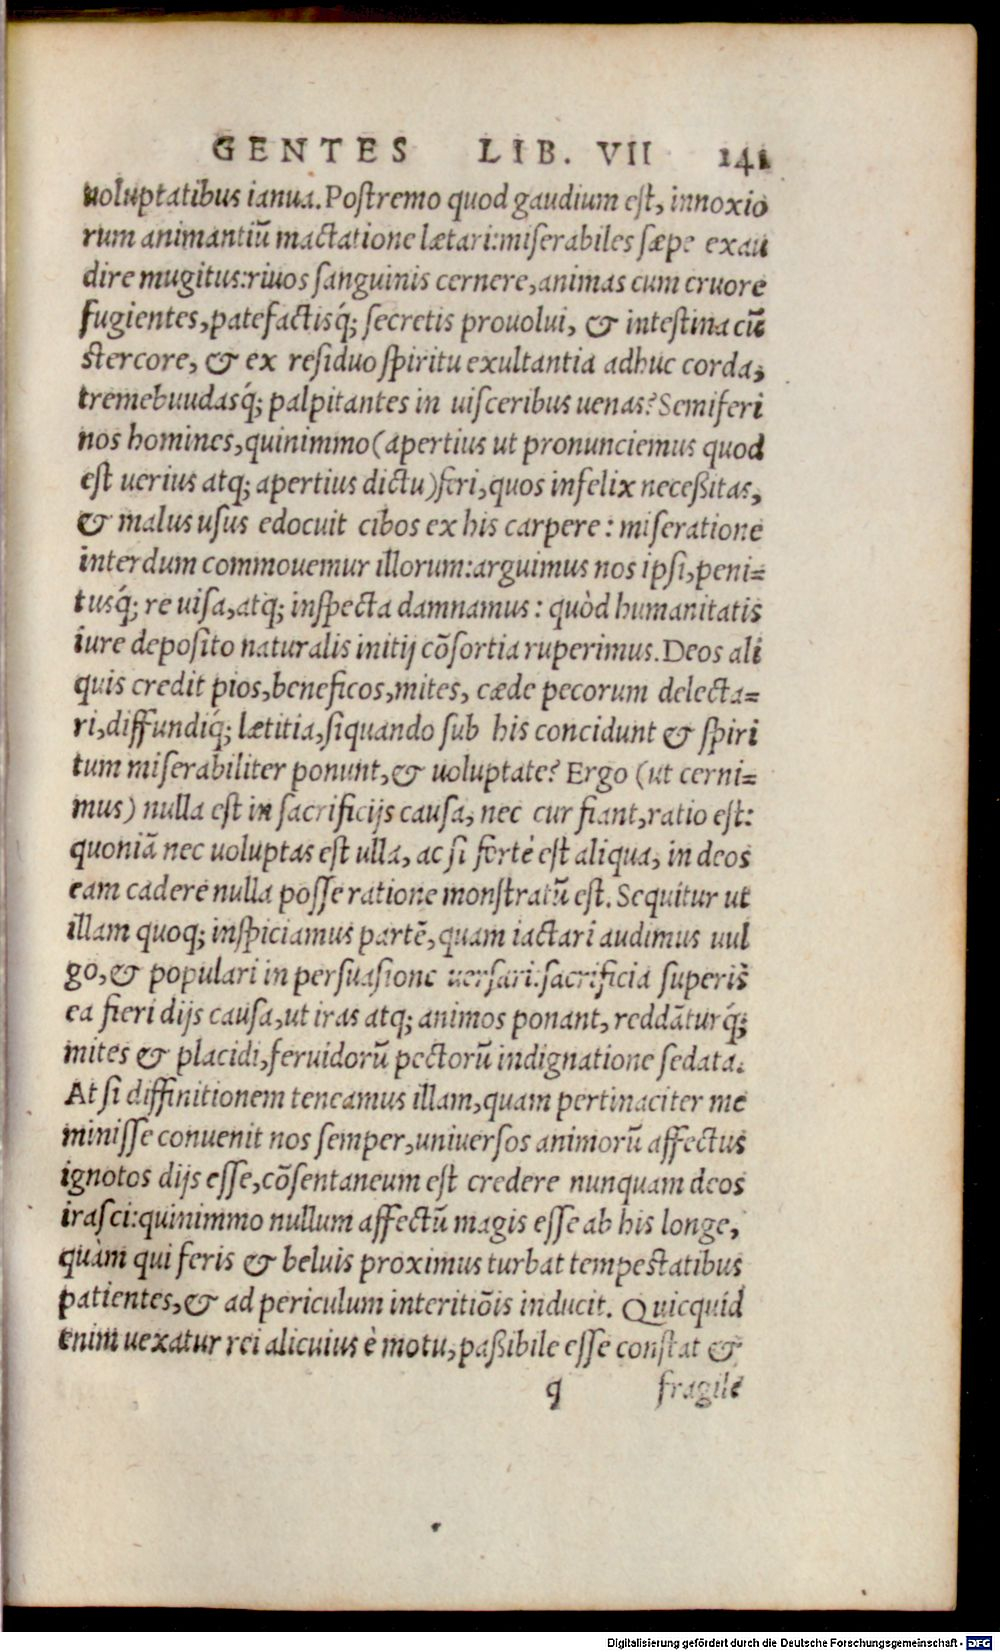 GENTES LIB. VII 141
uoluptatibus ianua. Postremo quod gaudium est, innoxio
rum animantiũ mactatione lætari: miserabiles sæpe exau
dire mugitus: riuos sanguinis cernere, animas cum cruore
fugientes, patefactisq́; secretis prouolui, & intestina cũ
stercore, & ex residuo spiritu exultantia adhuc corda,
tremebuudasq́; palpitantes in uisceribus uenas? Semiferi
nos homines, quinimmo (apertius ut pronunciemus quod
est uerius atq; apertius dictu) feri, quos infelix neceßitas,
& malus usus edocuit cibos ex his carpere: miseratione
interdum commouemur illorum: arguimus nos ipsi, peni=
tusq́; re uisa, atq; inspecta damnamus: quòd humanitatis
iure deposito naturalis initij cõsortia ruperimus. Deos ali
quis credit pios, beneficos, mites, cæde pecorum delecta=
ri, diffundiq́; lætitia, siquando sub his concidunt & spiri
tum miserabiliter ponunt, & uoluptate? Ergo (ut cerni=
mus) nulla est in sacrificijs causa, nec cur fiant, ratio est:
quoniã nec uoluptas est ulla, ac si fortè est aliqua, in deos
eam cadere nulla posse ratione monstratũ est. Sequitur ut
illam quoq; inspiciamus partẽ, quam iactari audimus uul
go, & populari in persuasione uersari: sacrificia superis
ea fieri dijs causa, ut iras atq; animos ponant, reddãturq́;
mites & placidi, feruidorũ pectorũ indignatione sedata.
At si diffinitionem teneamus illam, quam pertinaciter me
minisse conuenit nos semper, uniuersos animorũ affectus
ignotos dijs esse, cõsentaneum est credere nunquam deos
irasci: quinimmo nullum affectũ magis esse ab his longe,
quàm qui feris & beluis proximus turbat tempestatibus
patientes, & ad periculum interitiõis inducit. Quicquid
enim uexatur rei alicuius è motu, paßibile esse constat &
q fragile
Digitalisierung gefördert durch die Deutsche Forschungsgemeinschaft - DFG